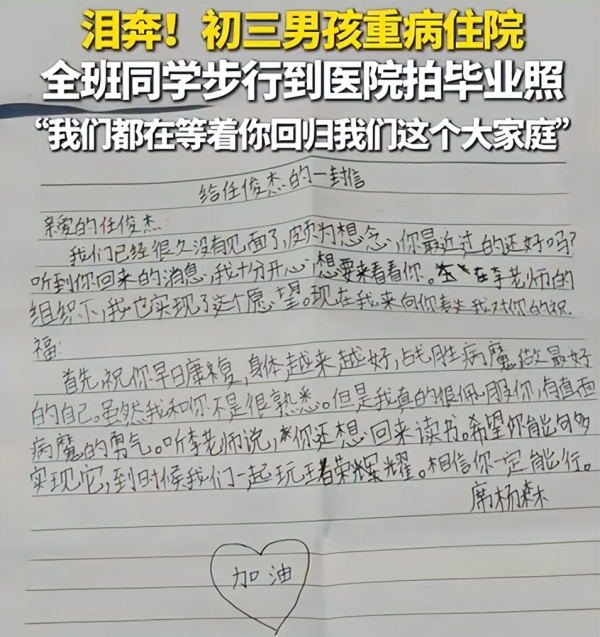 泪奔!初三男孩重病住院
全班同学步行到医院拍毕业照
“我们都在等着你回归我们这个大家庭”
给任俊杰的一封信
亲爱的任俊杰
我们已经很久没有见面了,颇为想念,你最近过的还好吗?
听到你回来的消息,我十分开心,想要来看看你。在李老师的
组织下,我也实现了这个愿望。现在我来向你表达我对你的祝
福:
首先,祝你早日康复,身体越来越好,战胜病魔做最好
的自己。虽然我和你不是很熟悉。但是我真的很佩服你,有直面
病魔的勇气。听李老师说,你还想回来读书。希望你能够
实现它,到时候我们一起玩王者荣耀。相信你一定能行。
席杨森
加油